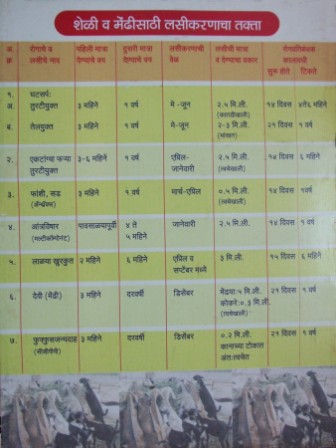 शेळी व मेंढीसाठी लसीकरणाचा तक्ता
अ. क्र | रोगाचे व लसीचे नाव | पहिली मात्रा देण्याचे वय | दुसरी मात्रा देण्याचे वय | लसीकरणाची वेळ | लसीची मात्रा व देण्याचा प्रकार | रोगप्रतिबंधक कालावधी सुरू होतो | टिकतो
१. घटसर्प:
अ. तुरटीयुक्त | ३ महिने | १ वर्ष | मे -जून | २.५ मि.ली. | १४ दिवस | ४ते६ महिने
ब. तेलयुक्त | ३ महिने | १ वर्ष | मे-जून | २-३ मि.ली. | २१ दिवस | १ वर्ष
२. एकटांग्या फऱ्या तुरटीयुक्त | ३-६ महिने | १ वर्ष | एप्रिल- जानेवारी | २.५ मि.ली. (त्वचेखाली) | १४ दिवस | ६ महिने
३. फाशी, रूड (अँन्थ्रेक्स) | ३ महिने | १ वर्ष | मार्च-एप्रिल | ०.५ मि.ली. (त्वचेखाली) | १४ दिवस | १वर्ष
४. आंत्रविषार (मल्टीकॉम्पोनंट) | पावसाळ्यापूर्वी | ४ ते ५ महिने | जानेवारी | २.५ मि.ली. | १४ दिवस | १ वर्ष
५. लाळ्या खुरकुत | २ महिने | ६ महिने | एप्रिल व सप्टेंबर मध्ये | ३ मि.ली. | १५ दिवस | ६ महिने
६. देवी (मेंढी) | ३ महिने | दरवर्षी | डिसेंबर | मेंढया:५ मि.ली. कोकरे:०.३ मि.ली. (त्वचेखाली) | २१ दिवस | १ वर्ष
७. फुफ्फुसजन्यदाह (सीसीपीपी) | ३ महिने | दरवर्षी | डिसेंबर | ०.२ मि.ली. कानाच्या टोकाला अंत:त्वचेत | २१ दिवस | १ वर्ष